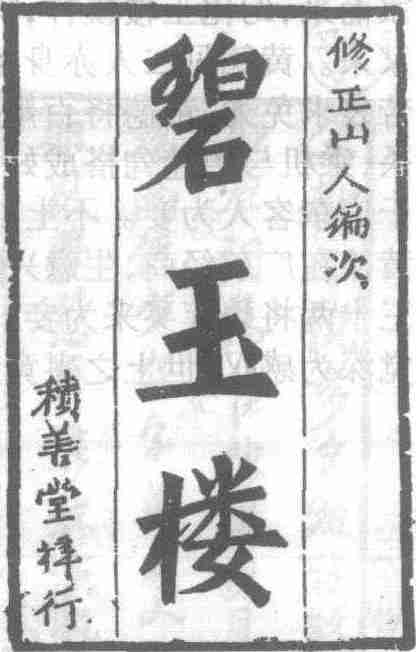 修正山人編次
碧玉楼
積善堂梓行